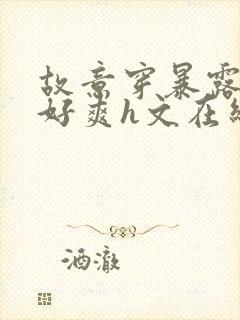 故意穿暴露
好爽h文在线
酒澈